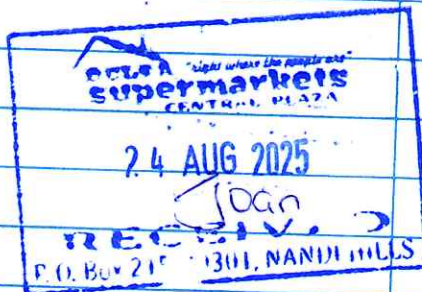 "right where the people are"
supermarkets
CENTRAL PLAZA
24 AUG 2025
Joan
RECEIV
P.O. Box 30301, NANDI HILLS